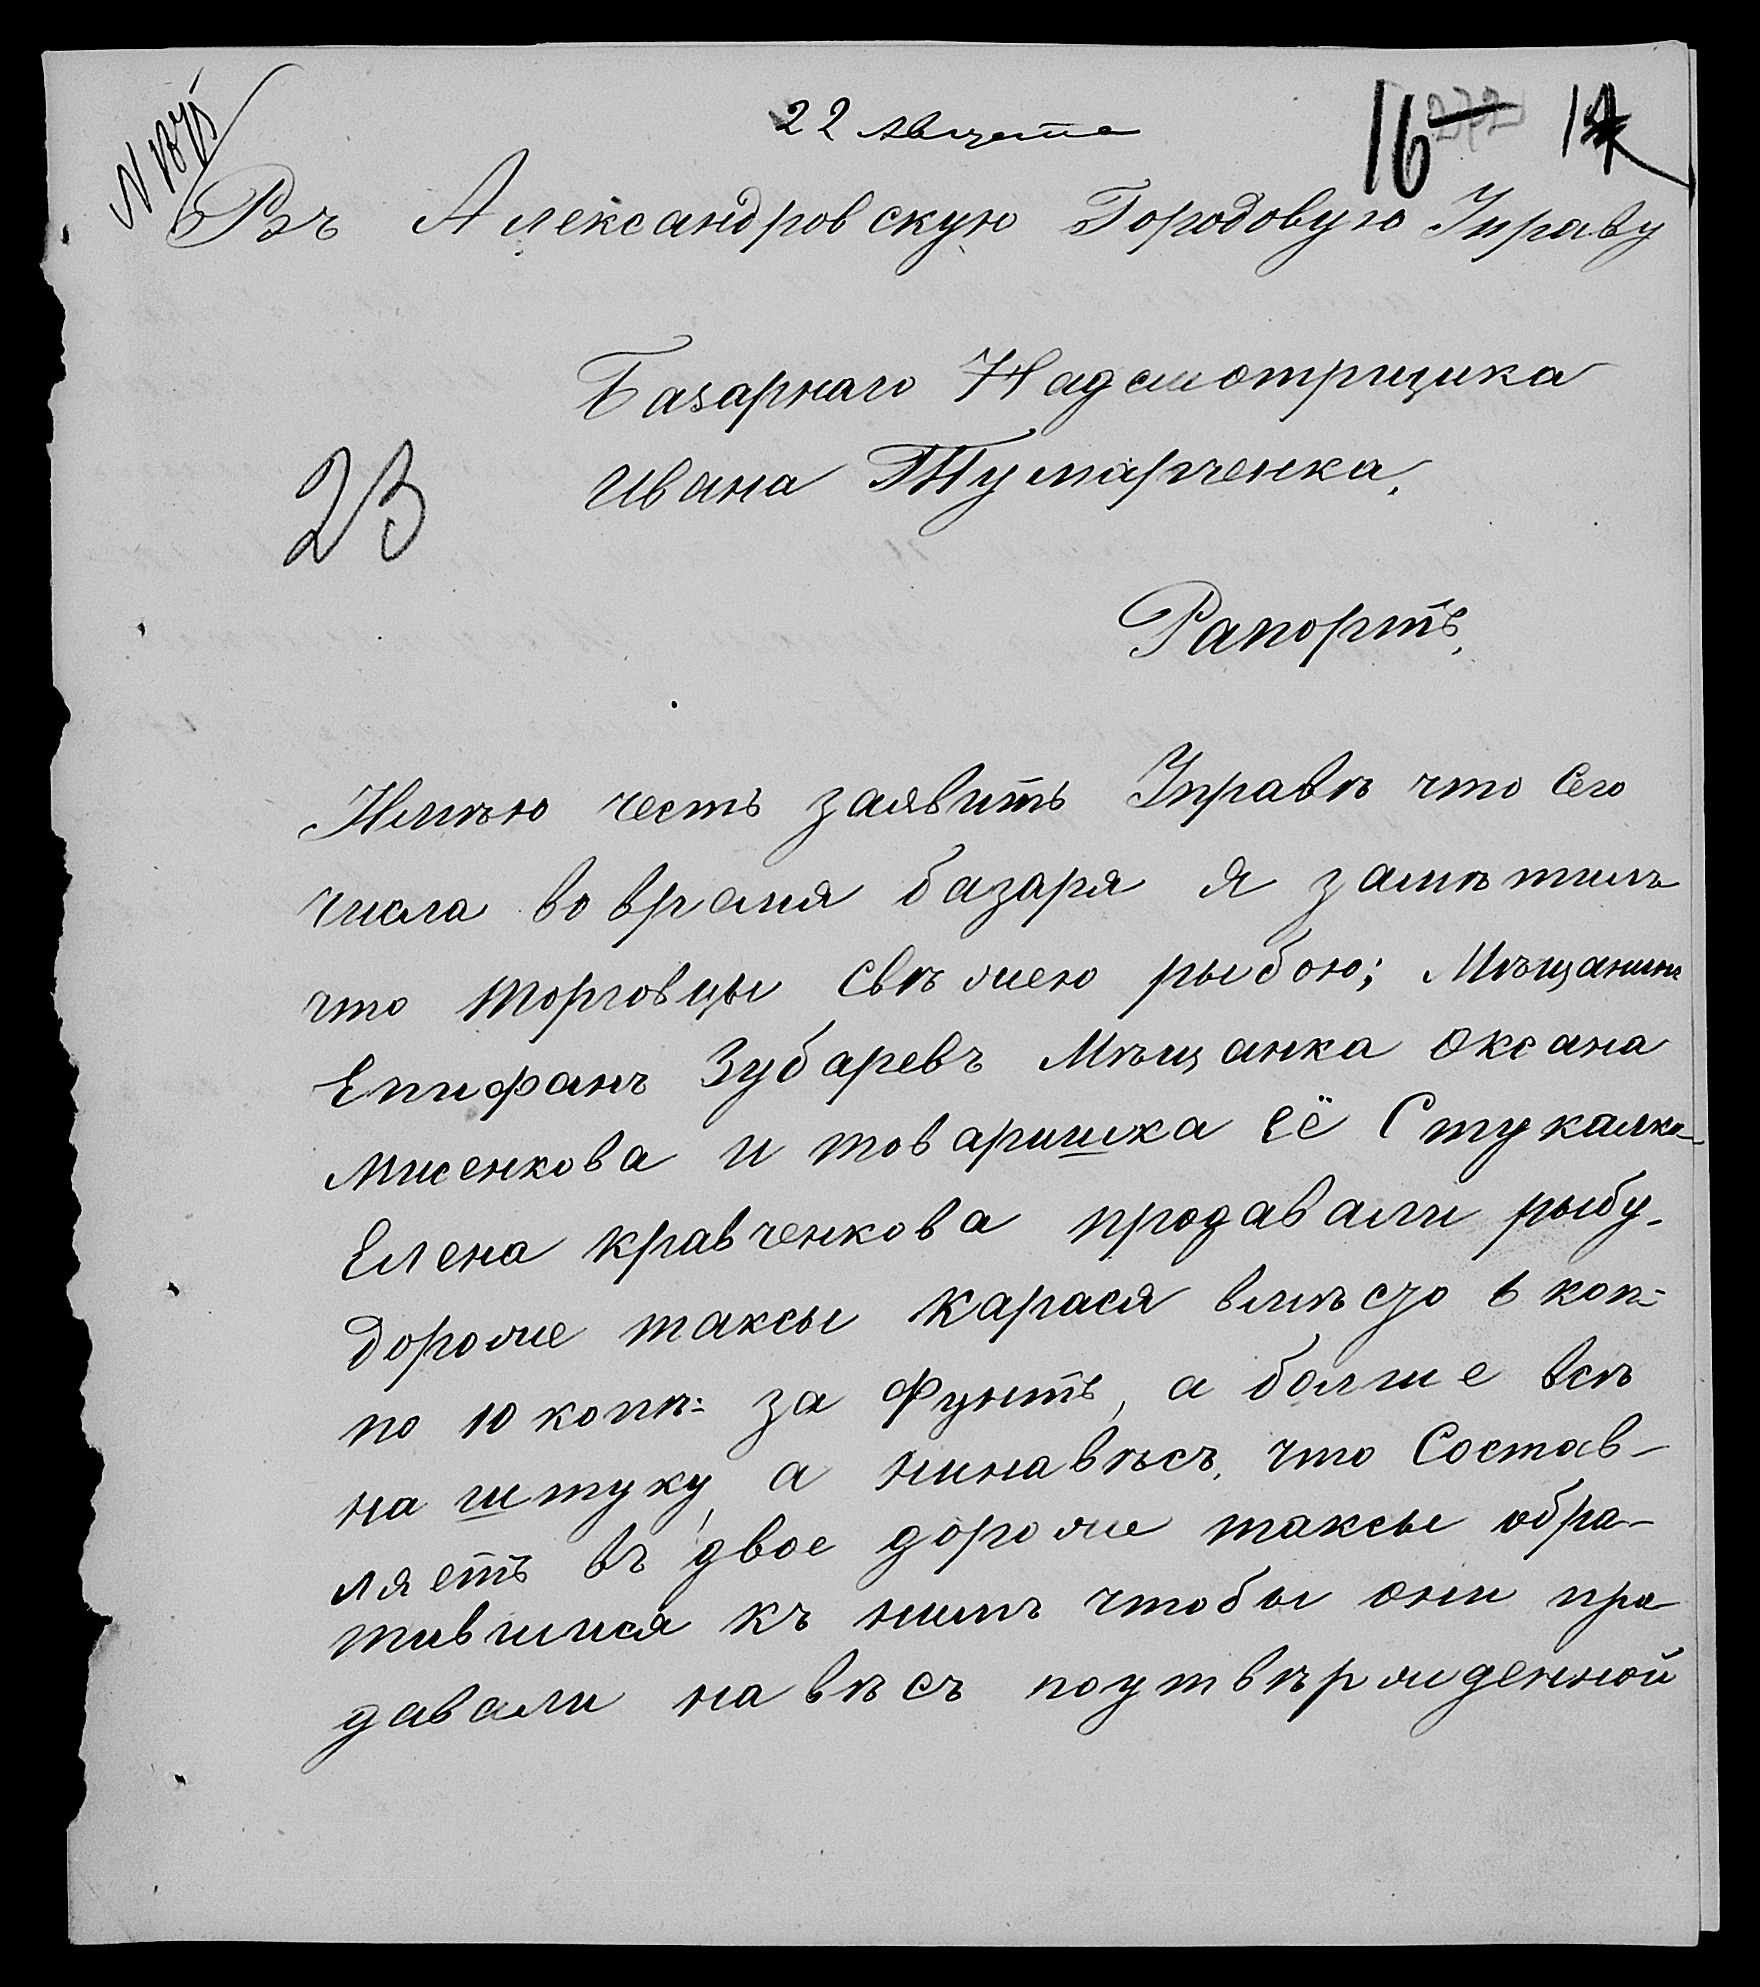 22 Августа
16 272
Въ Александровскую Городовую Управу
Базарнаго Надсмотрщика
Ивана Тумарченка.
23
Рапортъ.
Имѣю честь заявить Управѣ что Сего
числа во время базаря я замѣтилъ
что торговцы свѣжею рыбою; Мѣщанинъ
Епифанъ Зубаревъ Мѣщанка Оксана
Мисенкова и товаришка её Стукалка
Елена Кравченкова продавали рыбу
дороже таксы Карася вмѣсто 6 коп:
по 10 копѣ: за Фунтъ, а болше всѣ
на штуку, а нинавѣсъ, что Состав-
ляетъ въ двое дороже таксы обра-
тившися къ нимъ чтобы они про
давали на вѣсъ поутвѣржденной